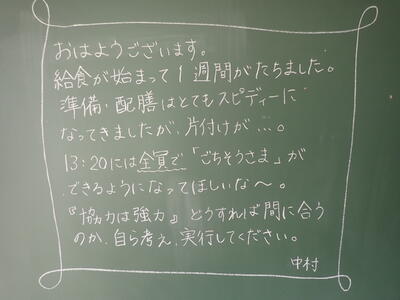 おはようございます。
給食が始まって1週間がたちました。
準備・配膳はとてもスピディーに
なってきましたが、片付けが…。
13:20には全員で「ごちそうさま」が
できるようになってほしいな〜。
『協力は強力』どうすれば間に合う
のか、自ら考え、実行してください。
中村